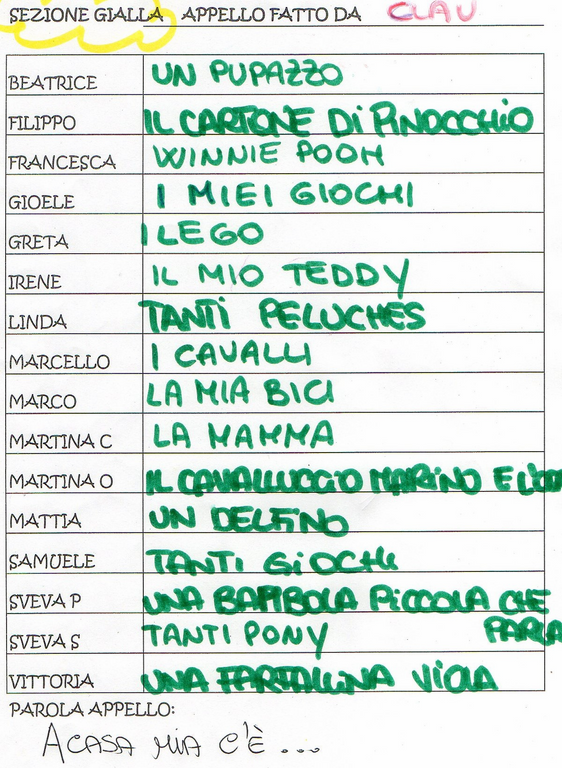 SEZIONE GIALLA APPELLO FATTO DA CLAU
BEATRICE UN PUPAZZO
FILIPPO IL CARTONE Di PINOCCHiO
FRANCESCA WINNIE POOH
GIOELE I MIEI GIOCHI
GRETA I LEGO
IRENE IL MIO TEDDY
LINDA TANTi PELUCHES
MARCELLO I CAVALLI
MARCO LA MIA BICI
MARTINA C LA MAMMA
MARTINA O IL CAVALLUCCiO MARiNO E
MATTIA UN DELFiNO
SAMUELE TANTI GiOCHi
SVEVA P UNA BAMBOLA PiCCOLA CHE PARLA
SVEVA S TANTI PONY
VITTORIA UNA FARFALLINA ViOLA
PAROLA APPELLO:
A CASA MIA C'È ...